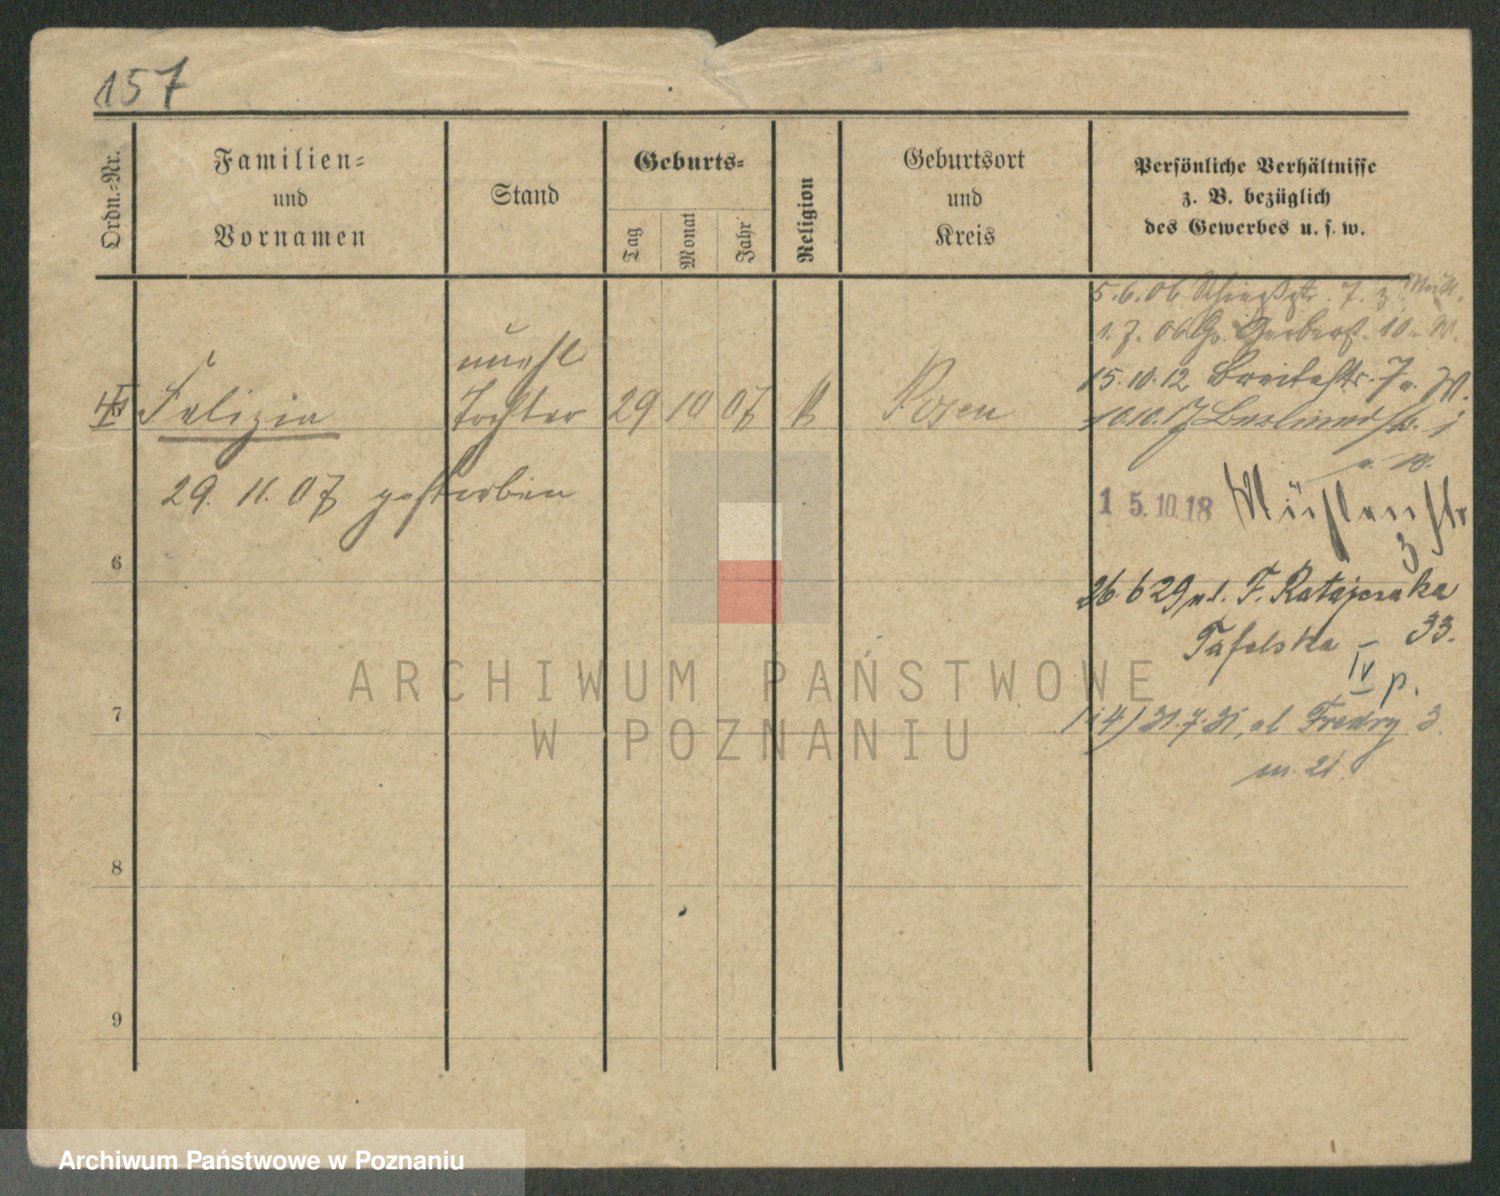 157
Ordn.-Nr.
Familien-
und
Vornamen
Stand
Geburts-
Tag
Monat
Jahr
Religion
Geburtsort
und
Kreis
Persönliche Verhältnisse
z. B. bezüglich
des Gewerbes u. s. w.
5.6.06 7. z.
1.7.06 Gr. Gerberst. 10. W.
unehl
Felizia Tochter 29 10 07 Posen
15.10.12 Breitestr. 7
10.10.17
29. 11. 07 gestorben
15.10.18 Mühlenstr
3
6
26.6.29 ul. F. Ratajczaka
33.
IV p.
7
31.7.31, ul Fredry 3.
m. 21.
8
9
ARCHIWUM PAŃSTWOWE
W POZNANIU
Archiwum Państwowe w Poznaniu